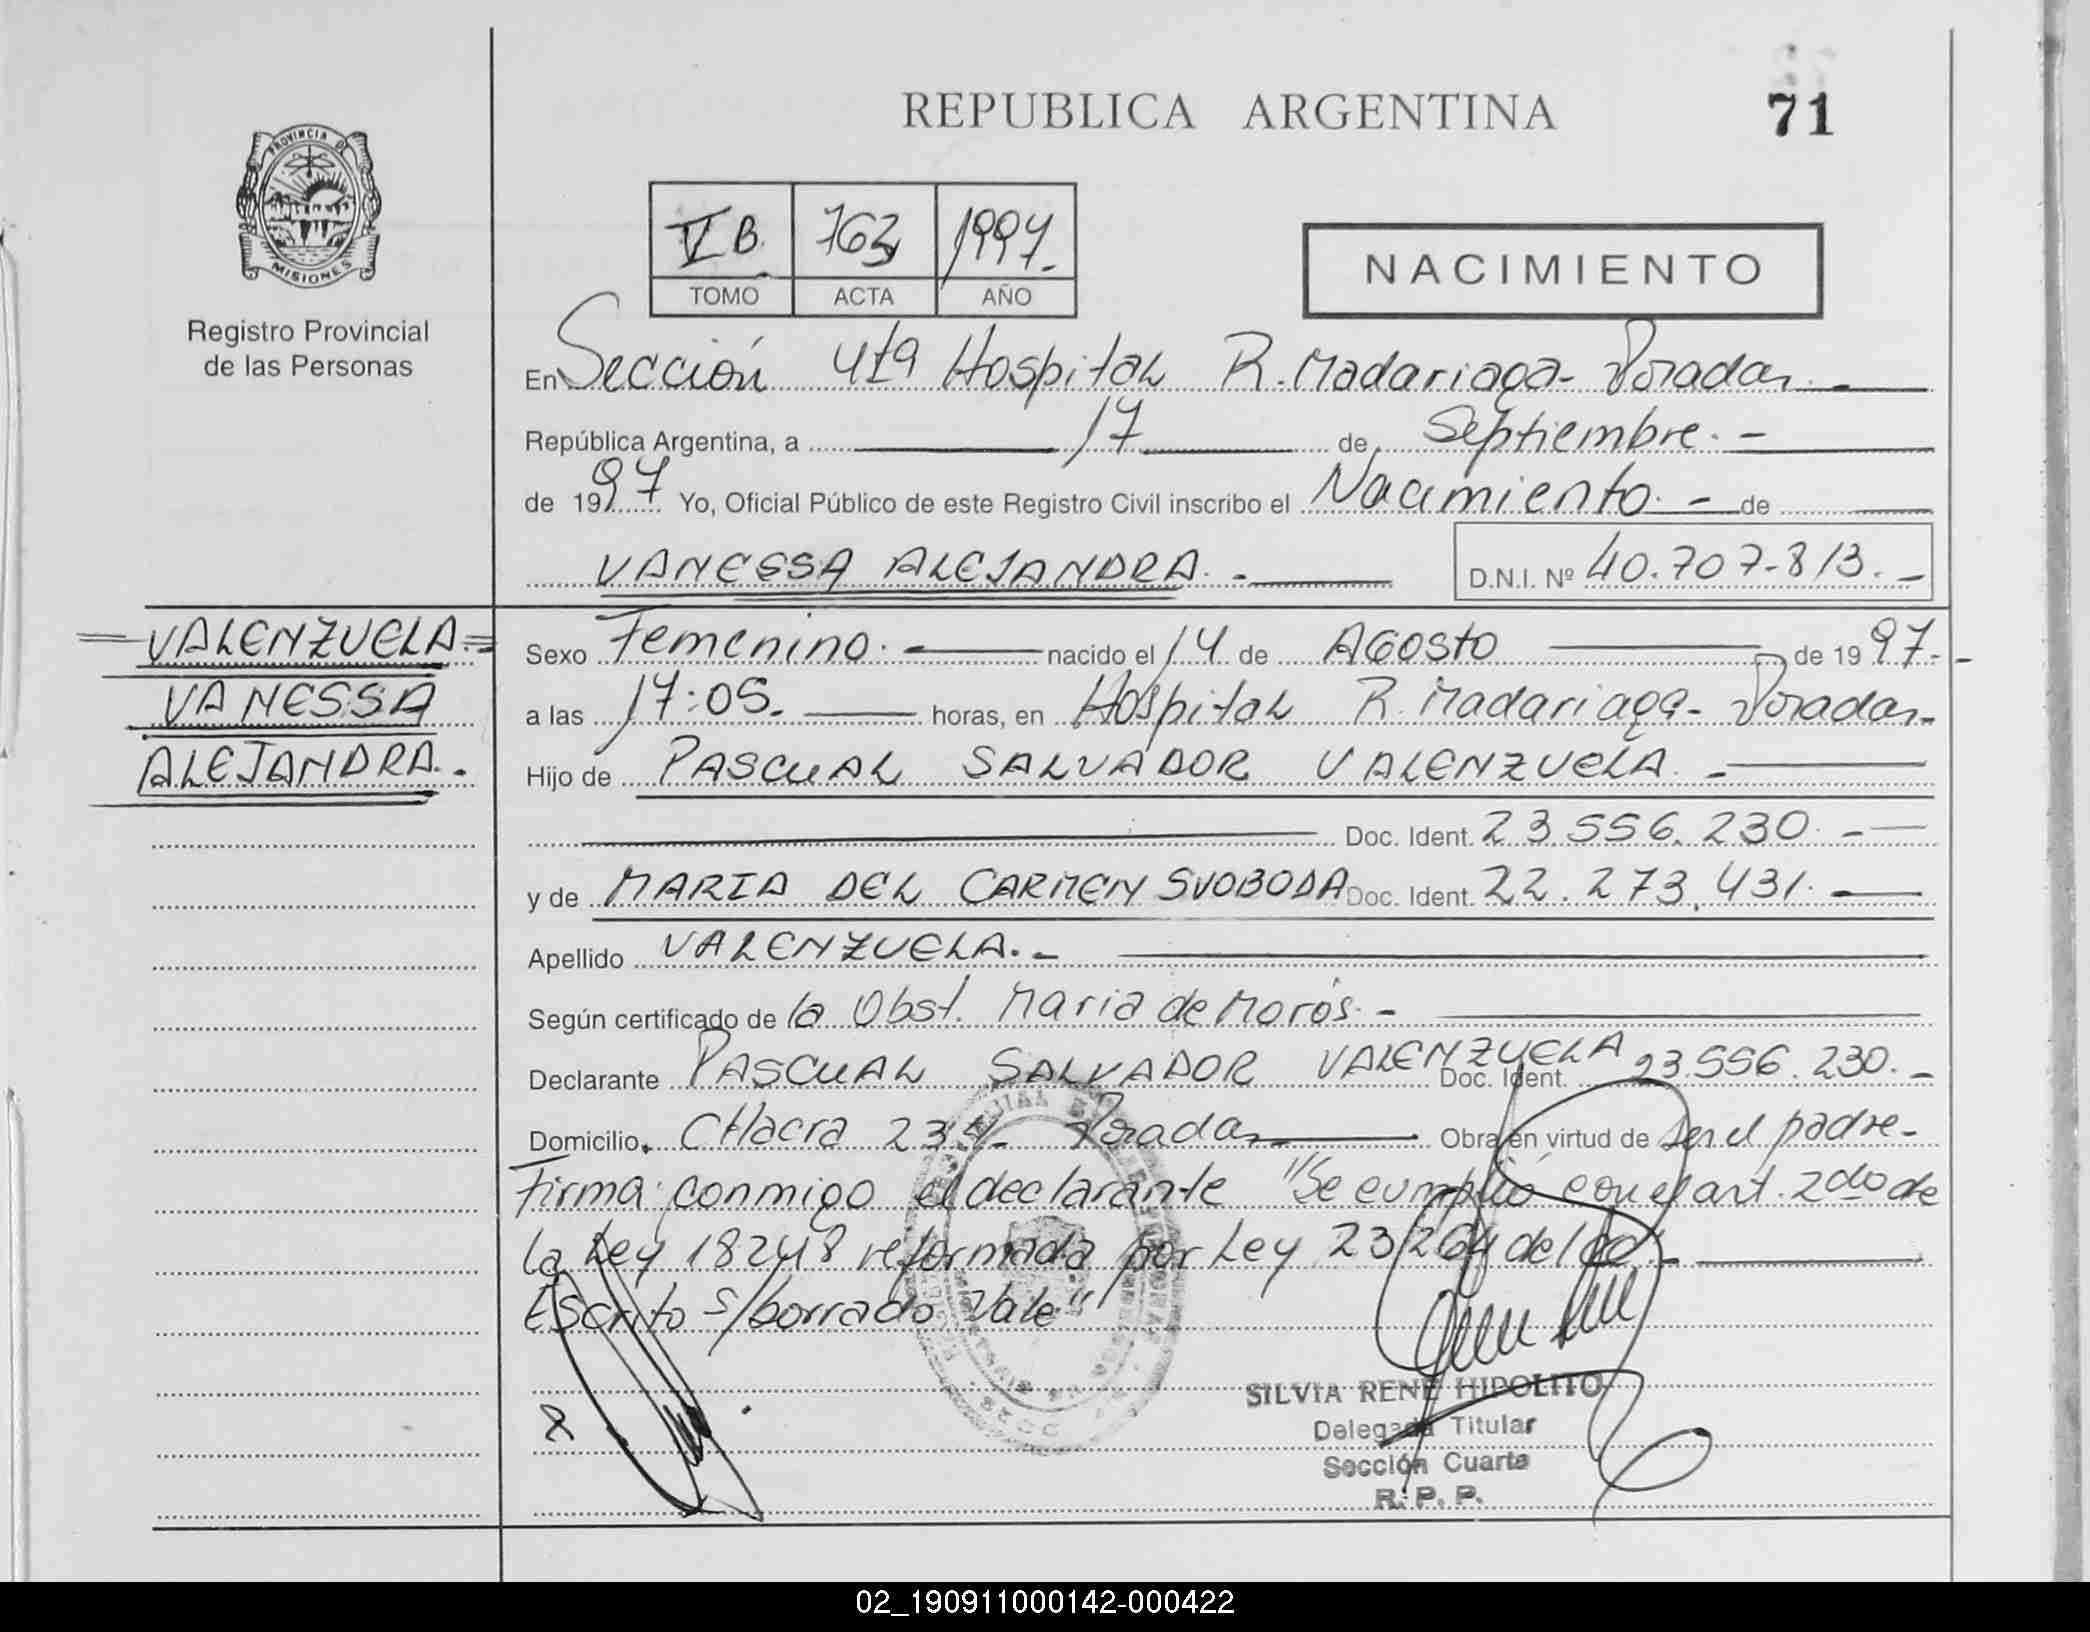 REPUBLICA ARGENTINA
71
PROVINCIA DE
MISIONES
Registro Provincial
de las Personas
V B. 763 1997.-
TOMO ACTA AÑO
NACIMIENTO
En Sección 4ta Hospital R. Madariaga - Posadas. -
República Argentina, a 17 de Septiembre. -
de 1997 Yo, Oficial Público de este Registro Civil inscribo el Nacimiento. - de
VANESSA ALEJANDRA. -
D.N.I. Nº 40.707.813. -
= VALENZUELA =
VANESSA
ALEJANDRA. -
Sexo Femenino. - nacido el 14 de AGOSTO de 1997. -
a las 17:05. horas, en Hospital R. Madariaga - Posadas -
Hijo de PASCUAL SALVADOR VALENZUELA. -
Doc. Ident. 23.556.230. -
y de MARIA DEL CARMEN SVOBODA Doc. Ident. 22.273.431. -
Apellido VALENZUELA. -
Según certificado de la Obst. Maria de Morós. -
Declarante PASCUAL SALVADOR VALENZUELA Doc. Ident. 23.556.230. -
Domicilio. CHacra 235 - Posadas Obra en virtud de ser el padre -
Firma conmigo el declarante "Se cumplió con el art. 2do de
la Ley 18248 reformada por Ley 23264 del
Escrito s/borrado Vale"
SILVIA RENE HIPOLITO
Delegada Titular
Sección Cuarta
R. P. P.
02_190911000142-000422